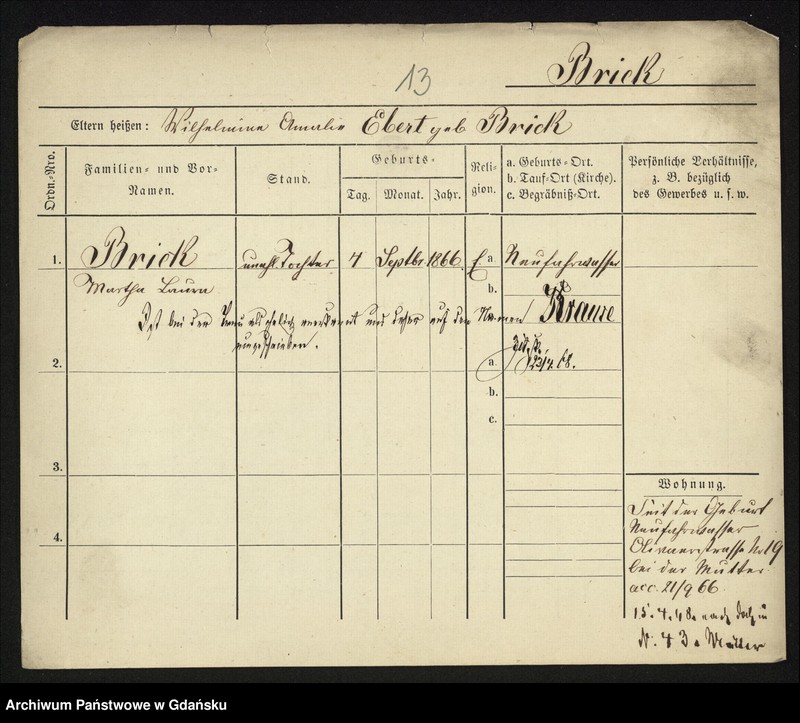 13
Brick
Eltern heißen: Wilhelmine Amalie Ebert geb Brick
Ordn.-Nro.
Familien- und Vor-Namen.
Stand.
Geburts-
Tag. Monat. Jahr.
Religion.
a. Geburts-Ort.
b. Tauf-Ort (Kirche).
c. Begräbniß-Ort.
Persönliche Verhältnisse,
z. B. bezüglich
des Gewerbes u. s. w.
1. Brick unehl. Tochter 4 Septbr 1866. E a. Neufahrwasser
Martha Laura
b.
Ist bei der Trau als ehelich anerkannt und daher auf den Namen Krause
umgeschrieben.
2.
a. 23/4.68.
b.
c.
3.
4.
Wohnung.
Seit der Geburt
Neufahrwasser
Olivaerstrasse No 19
bei der Mutter
acc. 21/9 66
15. 4. 68. nach
N. 43 a Mutter
Archiwum Państwowe w Gdańsku